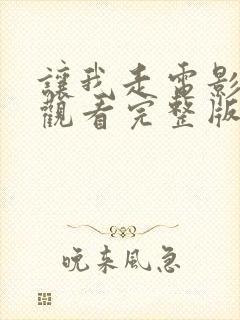 讓我走電影
觀看完整版
晚来風急